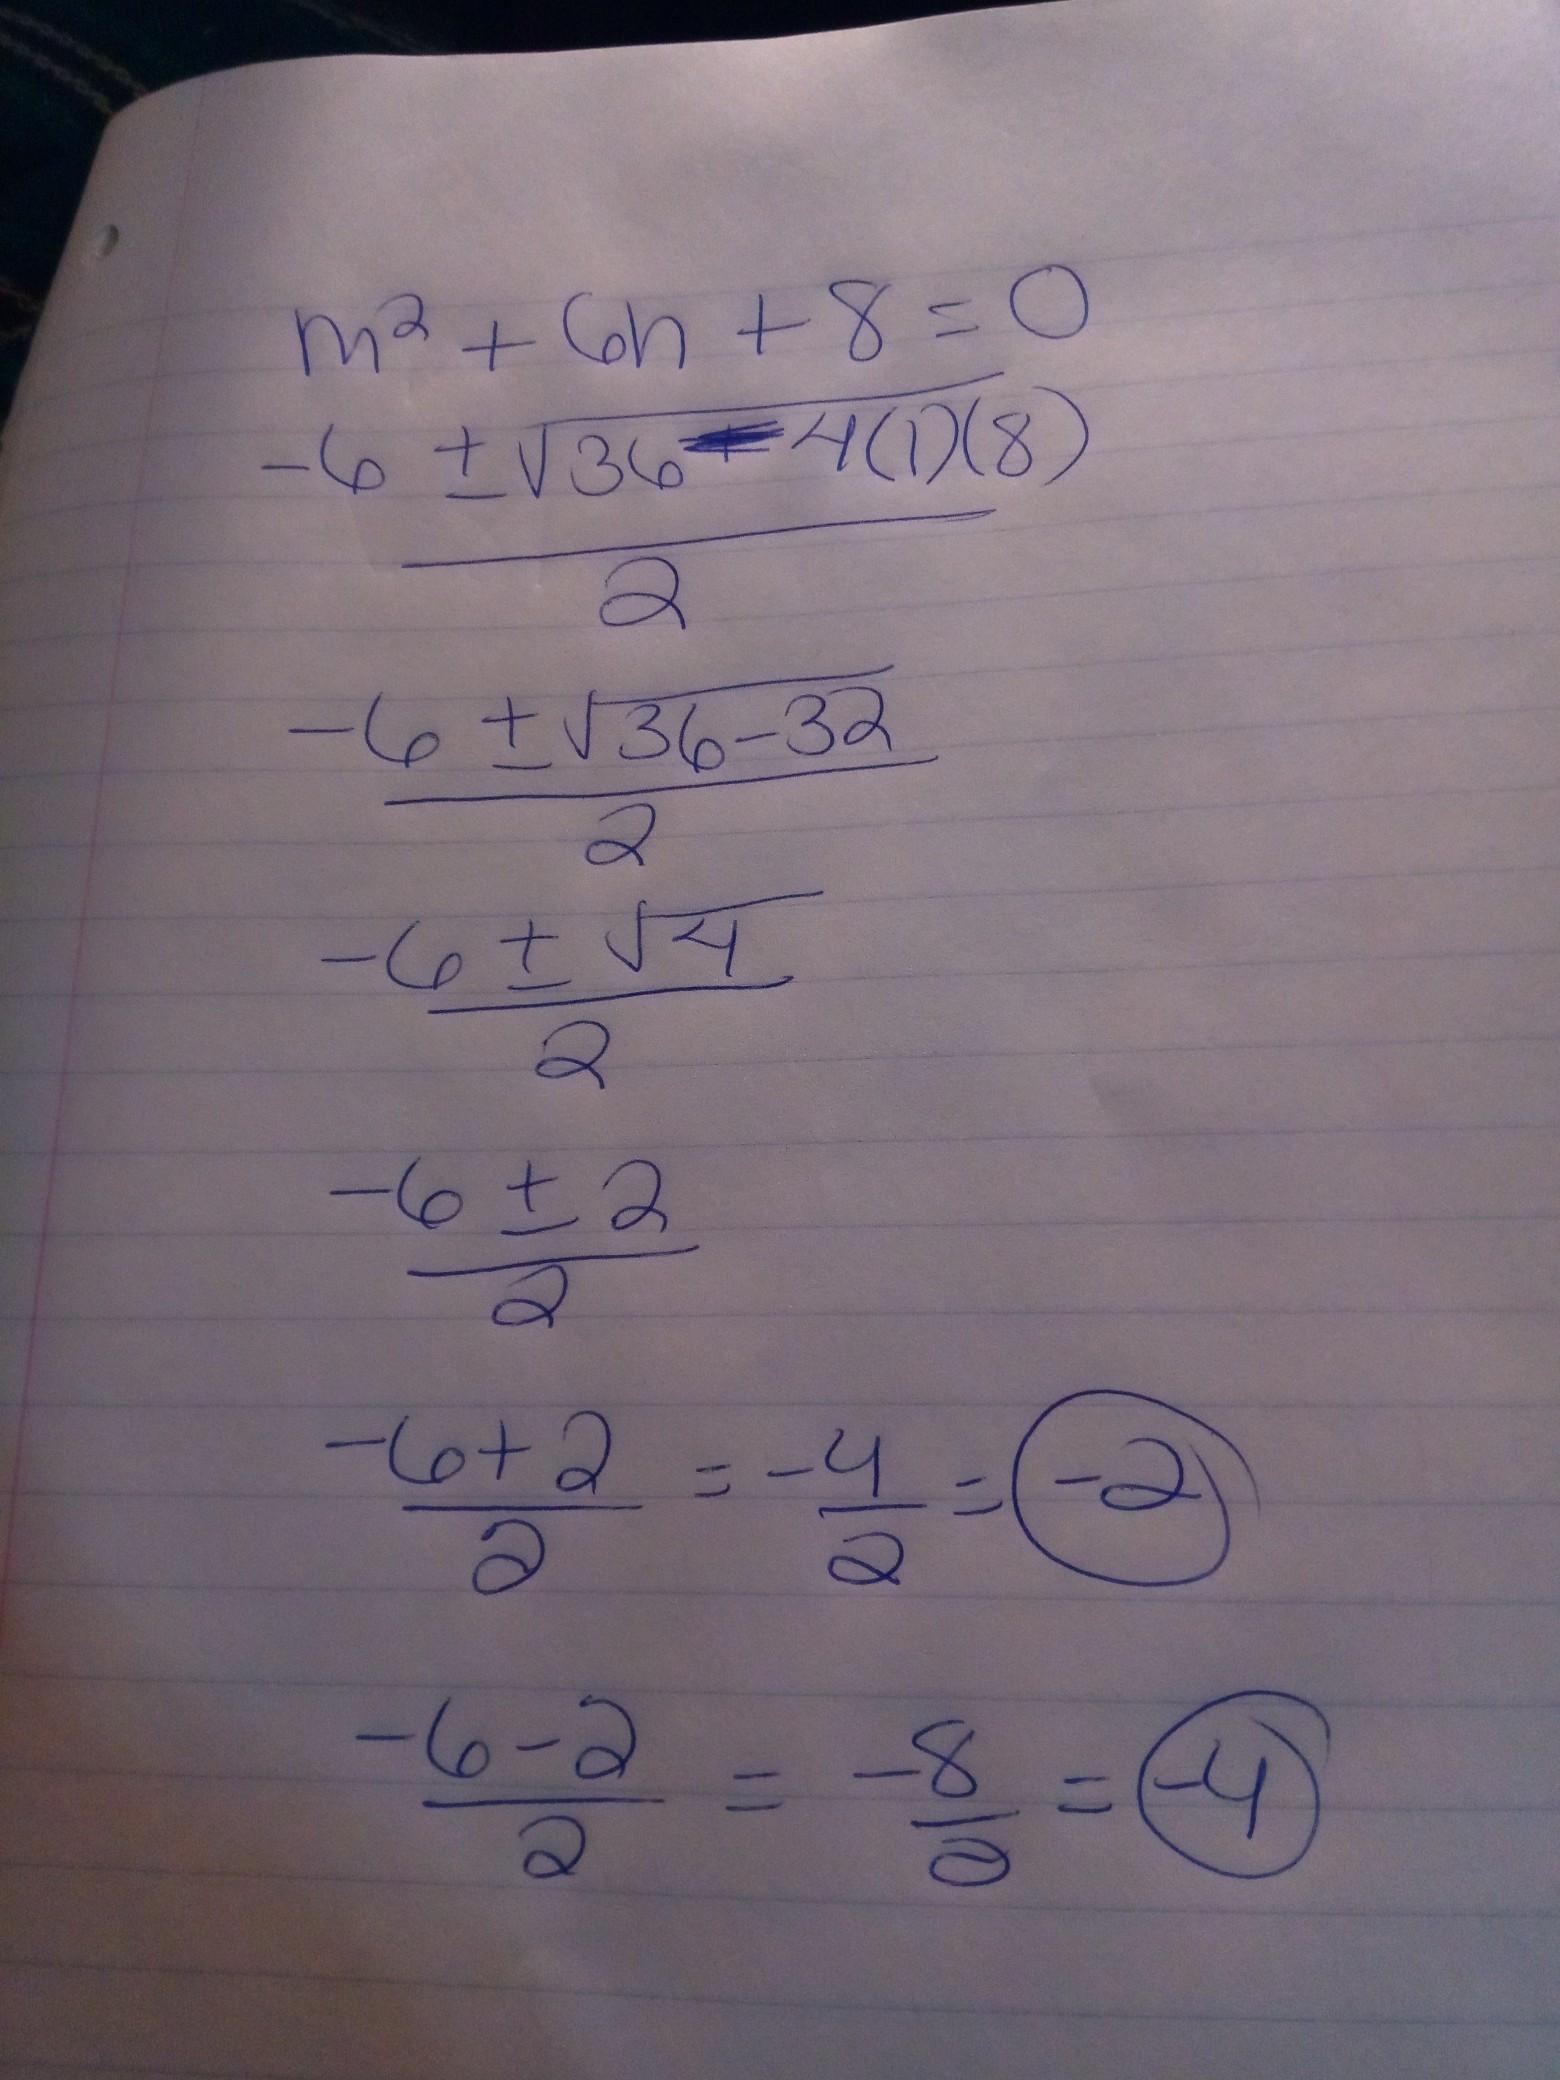 m² + 6n + 8 = 0
-6 ± √36 - 4(1)(8)
2
-6 ± √36-32
2
-6 ± √4
2
-6 ± 2
2
-6+2 = -4 = -2
2 2
-6-2 = -8 = -4
2 2